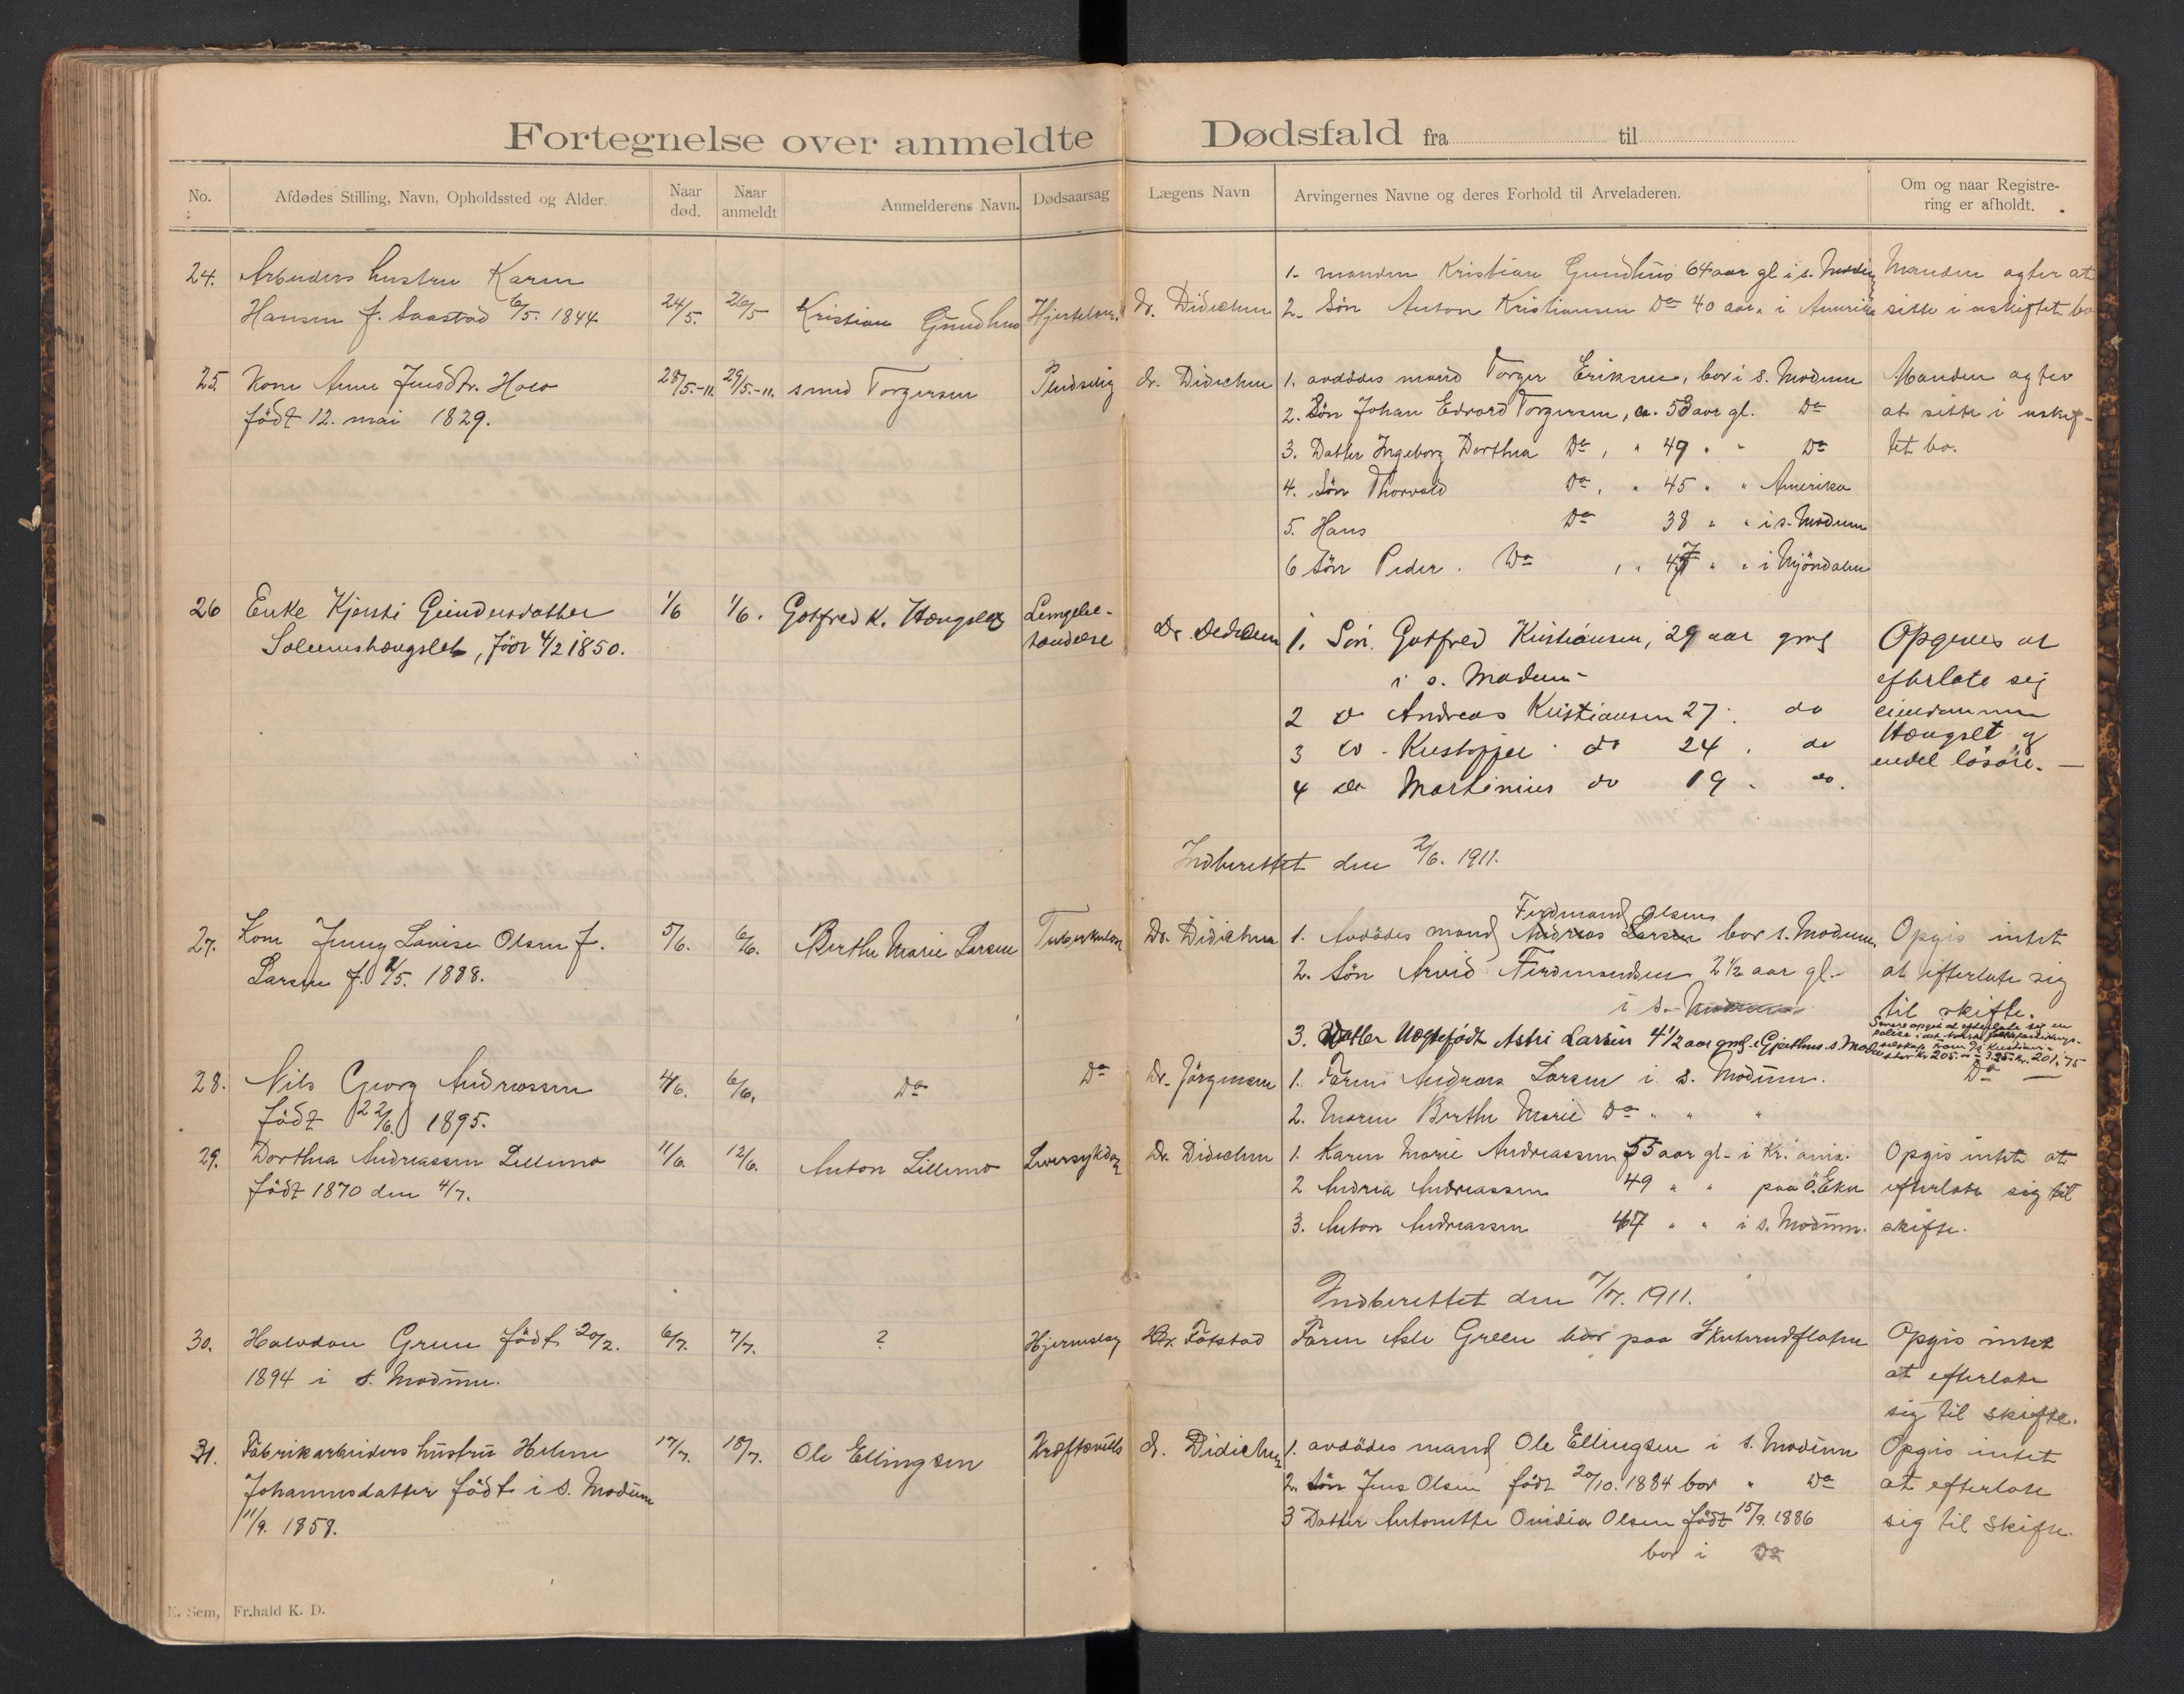 Fortegnelse over anmeldte Dødsfald fra til
No. Afdødes Stilling, Navn, Opholdssted og Alder. Naar død. Naar anmeldt Anmelderens Navn. Dødsaarsag Lægens Navn Arvingernes Navne og deres Forhold til Arveladeren. Om og naar Registrering er afholdt.
24. Arbeiders hustru Karen
Hansen f. Saastad 6/5. 1844 24/5. 26/5 Kristian Gundhus Dr. Didichen
1. manden Kristian Gundhus 64 aar gl i s. Modum
2. Søn Anton Kristiansen Do 40 aar i Amerika
Manden agter at
sitte i uskiftet bo
25 Kone Anne Jensdtr. Horo
født 12. mai 1829. 28/5-11. 29/5-11. smed Torgersen Pludselig dr. Didichen
1. avdødes mand Torger Eriksen, bor i s. Modum
2. Søn Johan Edvard Torgersen, a. 53 aar gl. Do
3. Datter Ingeborg Dorthea Do, " 49 " " Do
4. Søn Thorvald Do, " 45 " " Amerika
5. Hans Do 38 " " i s. Modum
6 Søn Peder. Do , " 47 " " i Mjöndalen
Manden agter
at sitte i uskif-
tet bo.
26 Enke Kjersti Gundersdatter
født 4/2 1850. 1/6 1/6. Gotfred K. Hængslet Lungebe-
tændelse
1. Søn. Gotfred Kristiansen, 29 aar gml
i s. Modum -
2 do Andreas Kristiansen 27. do
3 do - Kristoffer do 24. do
4 do Martinius do 19. do.
Opgives at
efterlate sig
eiendommen
Hængslet og
endel løsøre. -
Indberettet den 2/6. 1911.
27. Kone Jenny Lovise Olsen f.
Larsen f. /5. 1888. 5/6. 6/6. Berthe Marie Larsen Tuberkulose Dr. Didichen
Ferdinand Olsen
1. Avdödes mand Andreas Larsen bor s. Modum.
2. Søn Arvid Ferdinandsen 2 1/2 aar gl. -
i s. Modum
3. Datter Uægtefødt Astri Larsen 4 1/2 aar gml. i Gjethus s. Modum
Opgis intet
at efterlate sig
til skifte.
28. Nils Georg Andreassen
født 22/6. 1895. 4/6. 6/6. Do Do Dr. Jörgensen
1. Faren Andreas Larsen i s. Modum.
2. Moren Berthe Marie Do " " "
Do -
29. Dorthea Andreassen Lillemo
født 1870 den 4/7. 11/6. 12/6. Anton Lillemo Leversykdom Dr. Didichen
1. Karen Marie Andreassen 55 aar gl. i Kr.ania.
2 Andrea Andreassen 49 " " paa Ö. Eker
3. Anton Andreassen 47 " " i s. Modum.
Opgis intet at
efterlate sig til
skifte.
Indberettet den 7/7. 1911.
30. Halvdan Green født 20/2.
1894 i s. Modum. 6/7. 7/7. ? Hjerneslag Dr. Fötstad
Faren Asle Green bor paa Skuterudflaten
Opgis intet
at efterlate
sig til skifte.
31. Fabrikarbeiders hustru Helene
Johannesdatter født i s. Modum
11/9. 1858. 17/7. 18/7. Ole Ellingsen Kræftsvulst dr. Didichen
1. avdödes mand Ole Ellingsen i s. Modum
2. Søn Jens Olsen født 20/10. 1884 bor " Do
3 Datter Antonette Ovidia Olsen født 15/9. 1886
bor i Do
Opgis intet
at efterlate
sig til skifte.
E. Sem, Fr.hald K. D.